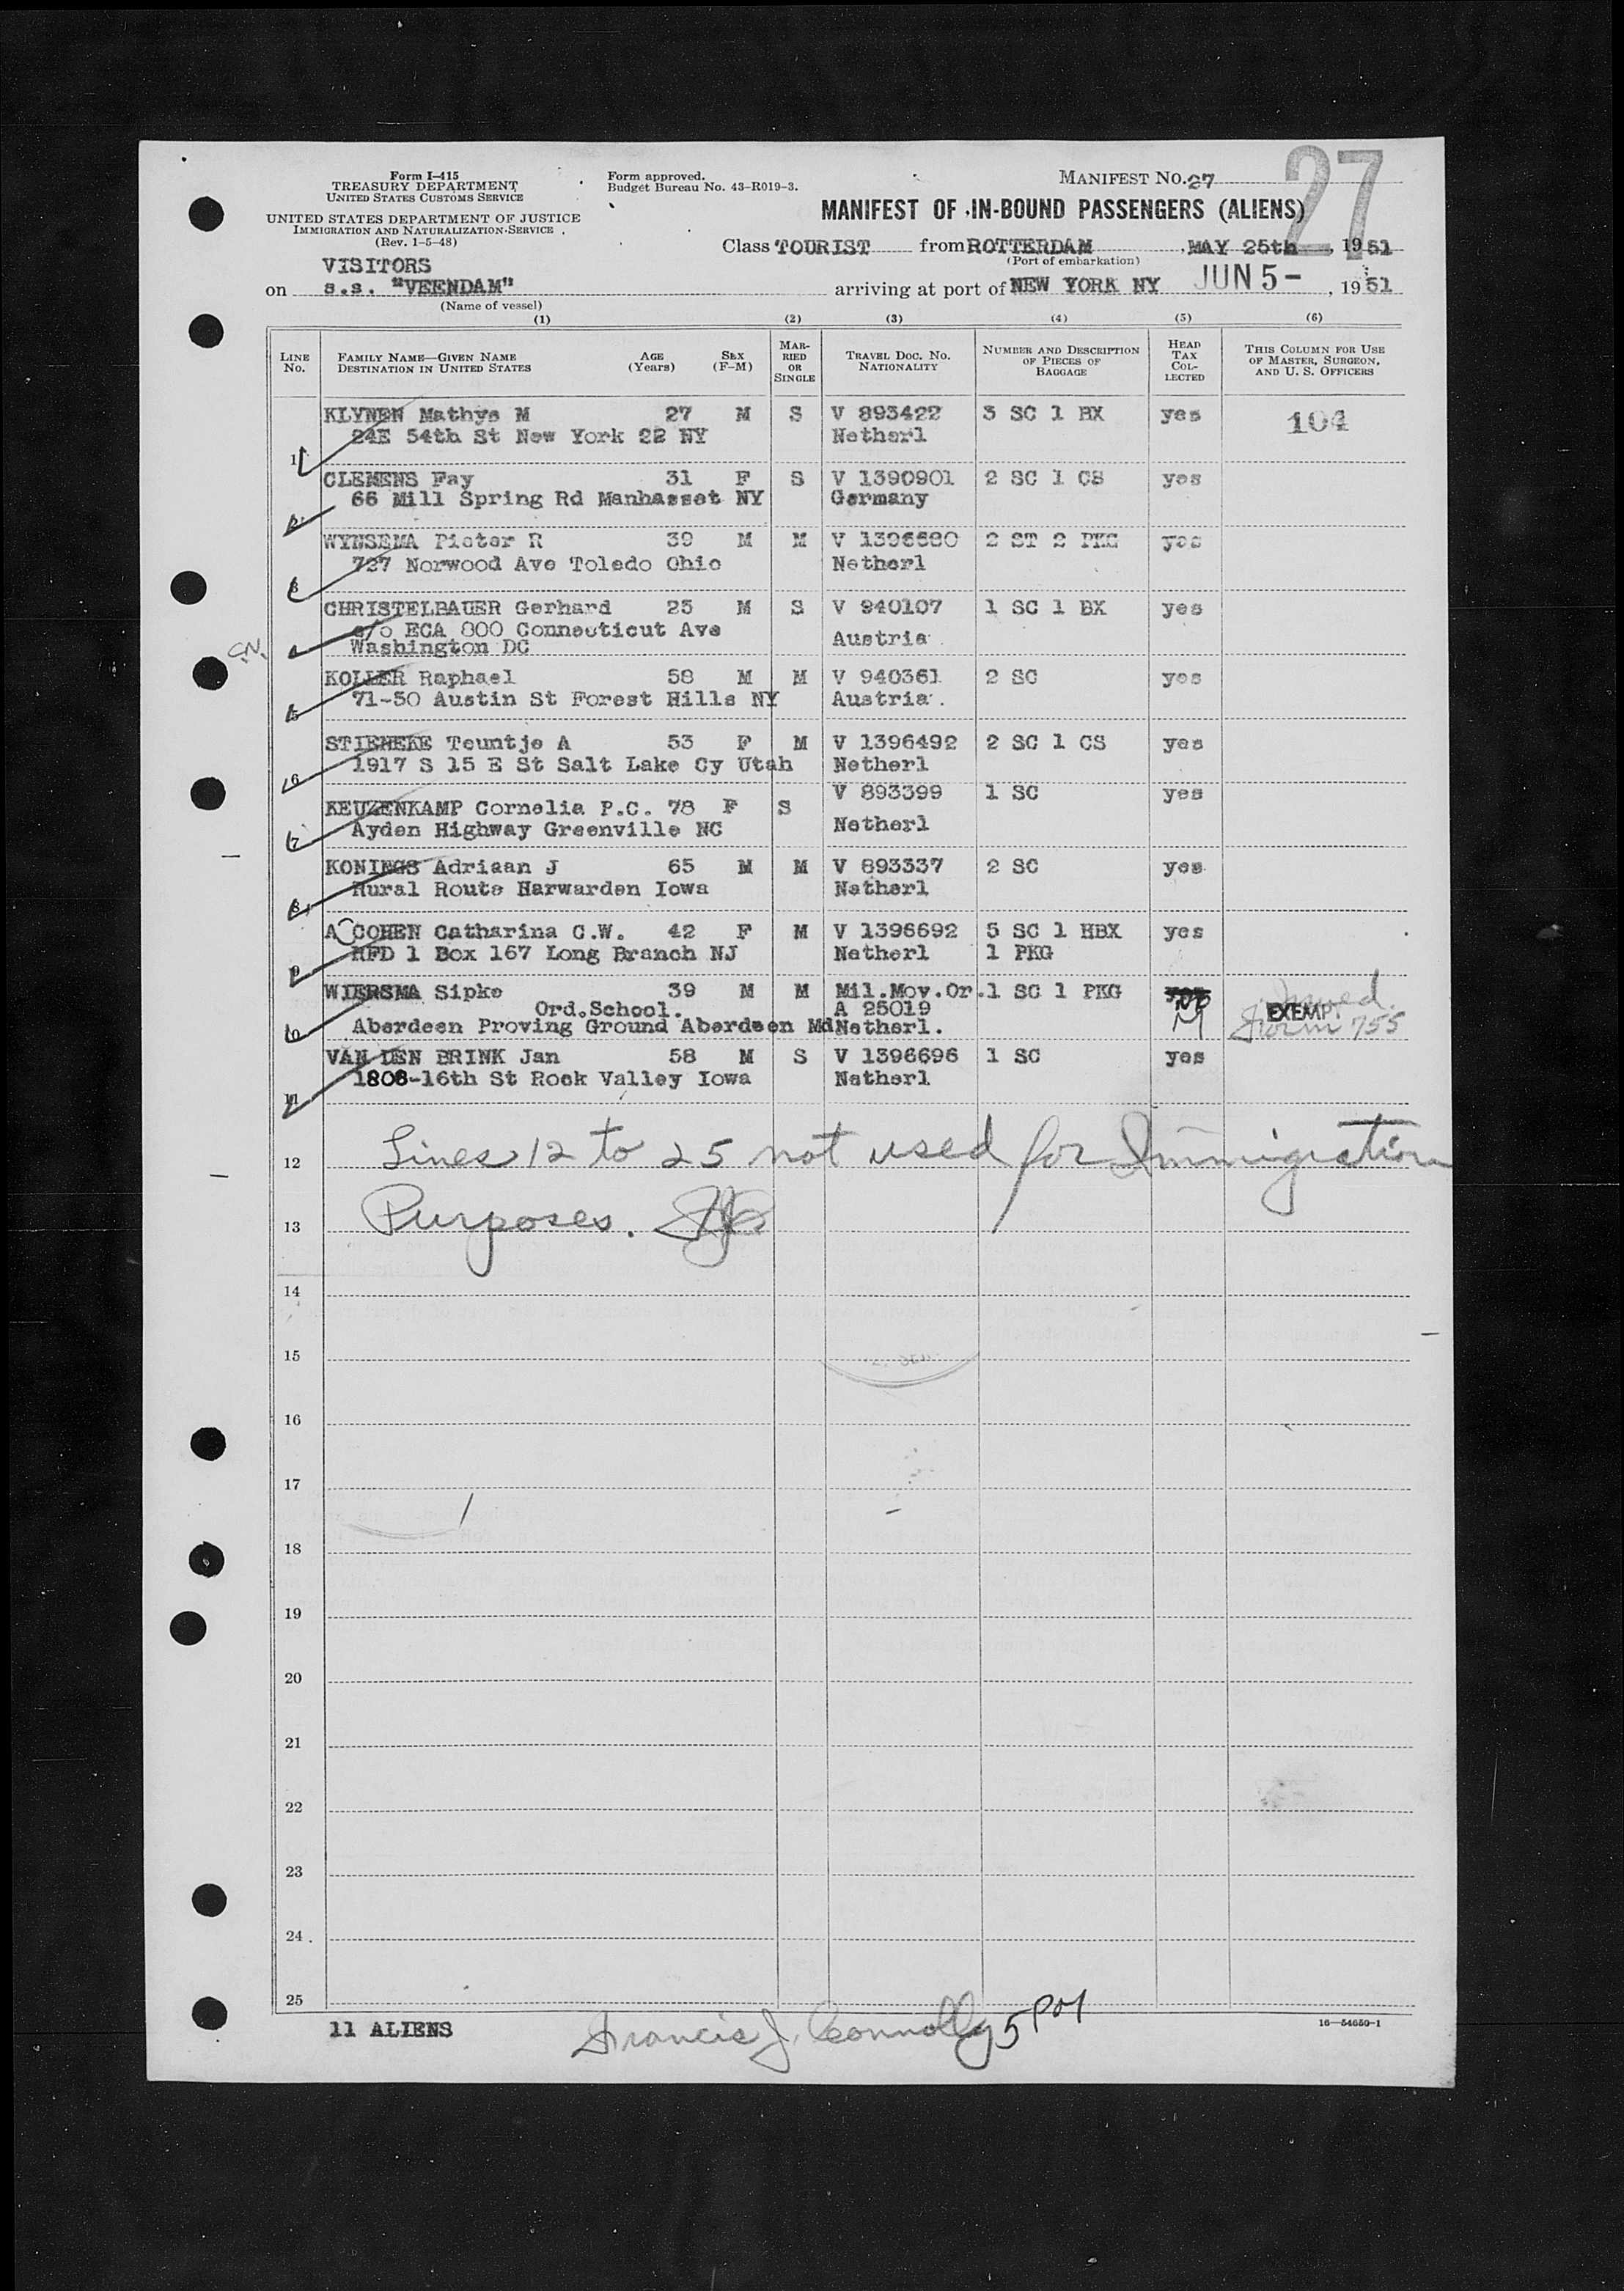 Form I-415
TREASURY DEPARTMENT
UNITED STATES CUSTOMS SERVICE
UNITED STATES DEPARTMENT OF JUSTICE
IMMIGRATION AND NATURALIZATION SERVICE
(Rev. 1-5-48)
Form approved.
Budget Bureau No. 43-R019-3.
MANIFEST NO. 27
27
MANIFEST OF IN-BOUND PASSENGERS (ALIENS)
Class TOURIST from ROTTERDAM, MAY 25th, 1951
(Port of embarkation)
VISITORS
on s.s. "VEENDAM" arriving at port of NEW YORK NY JUN 5-, 1951
(Name of vessel)
(1) (2) (3) (4) (5) (6)
LINE No. FAMILY NAME—GIVEN NAME DESTINATION IN UNITED STATES AGE (Years) SEX (F-M) MARRIED OR SINGLE TRAVEL DOC. NO. NATIONALITY NUMBER AND DESCRIPTION OF PIECES OF BAGGAGE HEAD TAX COLLECTED THIS COLUMN FOR USE OF MASTER, SURGEON, AND U. S. OFFICERS
KLYNEN Mathys M 27 M S V 893422 3 SC 1 BX yes 104
24E 54th St New York 22 NY Netherl
1
CLEMENS Fay 31 F S V 1390901 2 SC 1 CS yes
66 Mill Spring Rd Manhasset NY Germany
2
WYNSEMA Pieter R 39 M M V 1396680 2 ST 2 PKG yes
727 Norwood Ave Toledo Ohio Netherl
3
CHRISTELBAUER Gerhard 25 M S V 940107 1 SC 1 BX yes
c/o ECA 800 Connecticut Ave Austria
S.N. 4 Washington DC
KOLLER Raphael 58 M M V 940361 2 SC yes
71-50 Austin St Forest Hills NY Austria
5
STIENEKE Teuntje A 53 F M V 1396492 2 SC 1 CS yes
1917 S 15 E St Salt Lake Cy Utah Netherl
6
KEUZENKAMP Cornelia P.C. 78 F S V 893399 1 SC yes
Ayden Highway Greenville NC Netherl
7
KONINGS Adriaan J 65 M M V 893337 2 SC yes
Rural Route Harwarden Iowa Netherl
8
A COHEN Catharina C.W. 42 F M V 1396692 5 SC 1 HBX yes
RFD 1 Box 167 Long Branch NJ Netherl 1 PKG
9
WIERSMA Sipke 39 M M Mil.Mov.Or. 1 SC 1 PKG
Ord.School. A 25019 EXEMPT
Aberdeen Proving Ground Aberdeen Md Netherl. Form 755
10
VAN DEN BRINK Jan 58 M S V 1396696 1 SC yes
1808-16th St Rock Valley Iowa Netherl
11
12 Lines 12 to 25 not used for Immigration
13 Purposes.
14
15
16
17
18
19
20
21
22
23
24
25
11 ALIENS Francis J. Connolly 16—54650-1